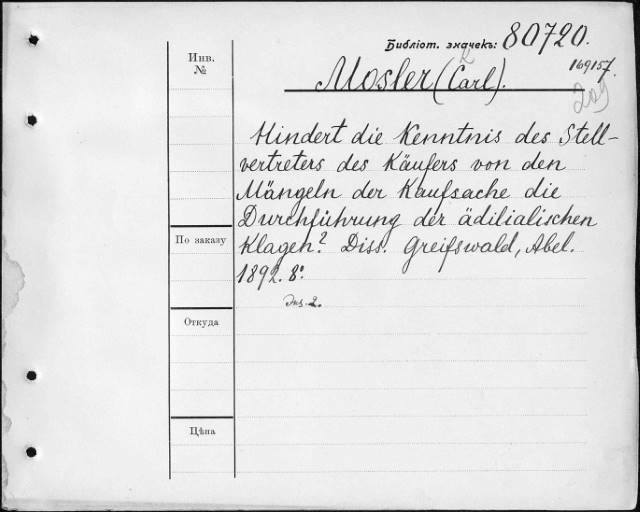 Библіот. значекъ: 80720.
169157.
K
Mosler (Carl).
209
Инв.
№
Hindert die Kenntnis des Stell-
vertreters des Käufers von den
Mängeln der Kaufsache die
Durchführung der ädilialischen
Klagen? Diss. Greifswald, Abel.
1892. 8º.
Экз. 2.
По заказу
Откуда
Цѣна